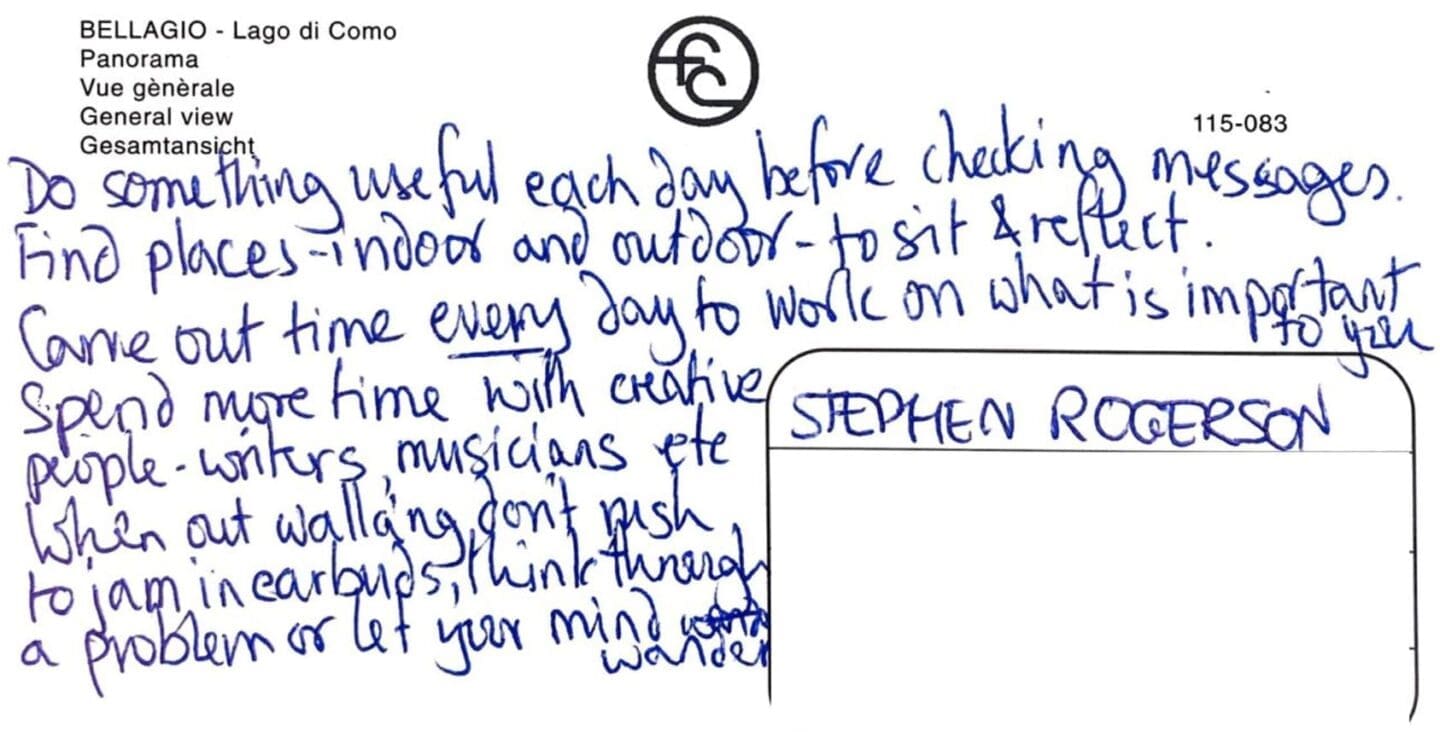 BELLAGIO - Lago di Como
Panorama
Vue gènèrale
General view
Gesamtansicht
fc
115-083
Do something useful each day before checking messages.
Find places - indoor and outdoor - to sit & reflect.
Carve out time every day to work on what is important
to you
Spend more time with creative
people - writers, musicians etc
When out walking, don't rush
to jam in earbuds, think through
a problem or let your mind
wander
STEPHEN ROGERSON